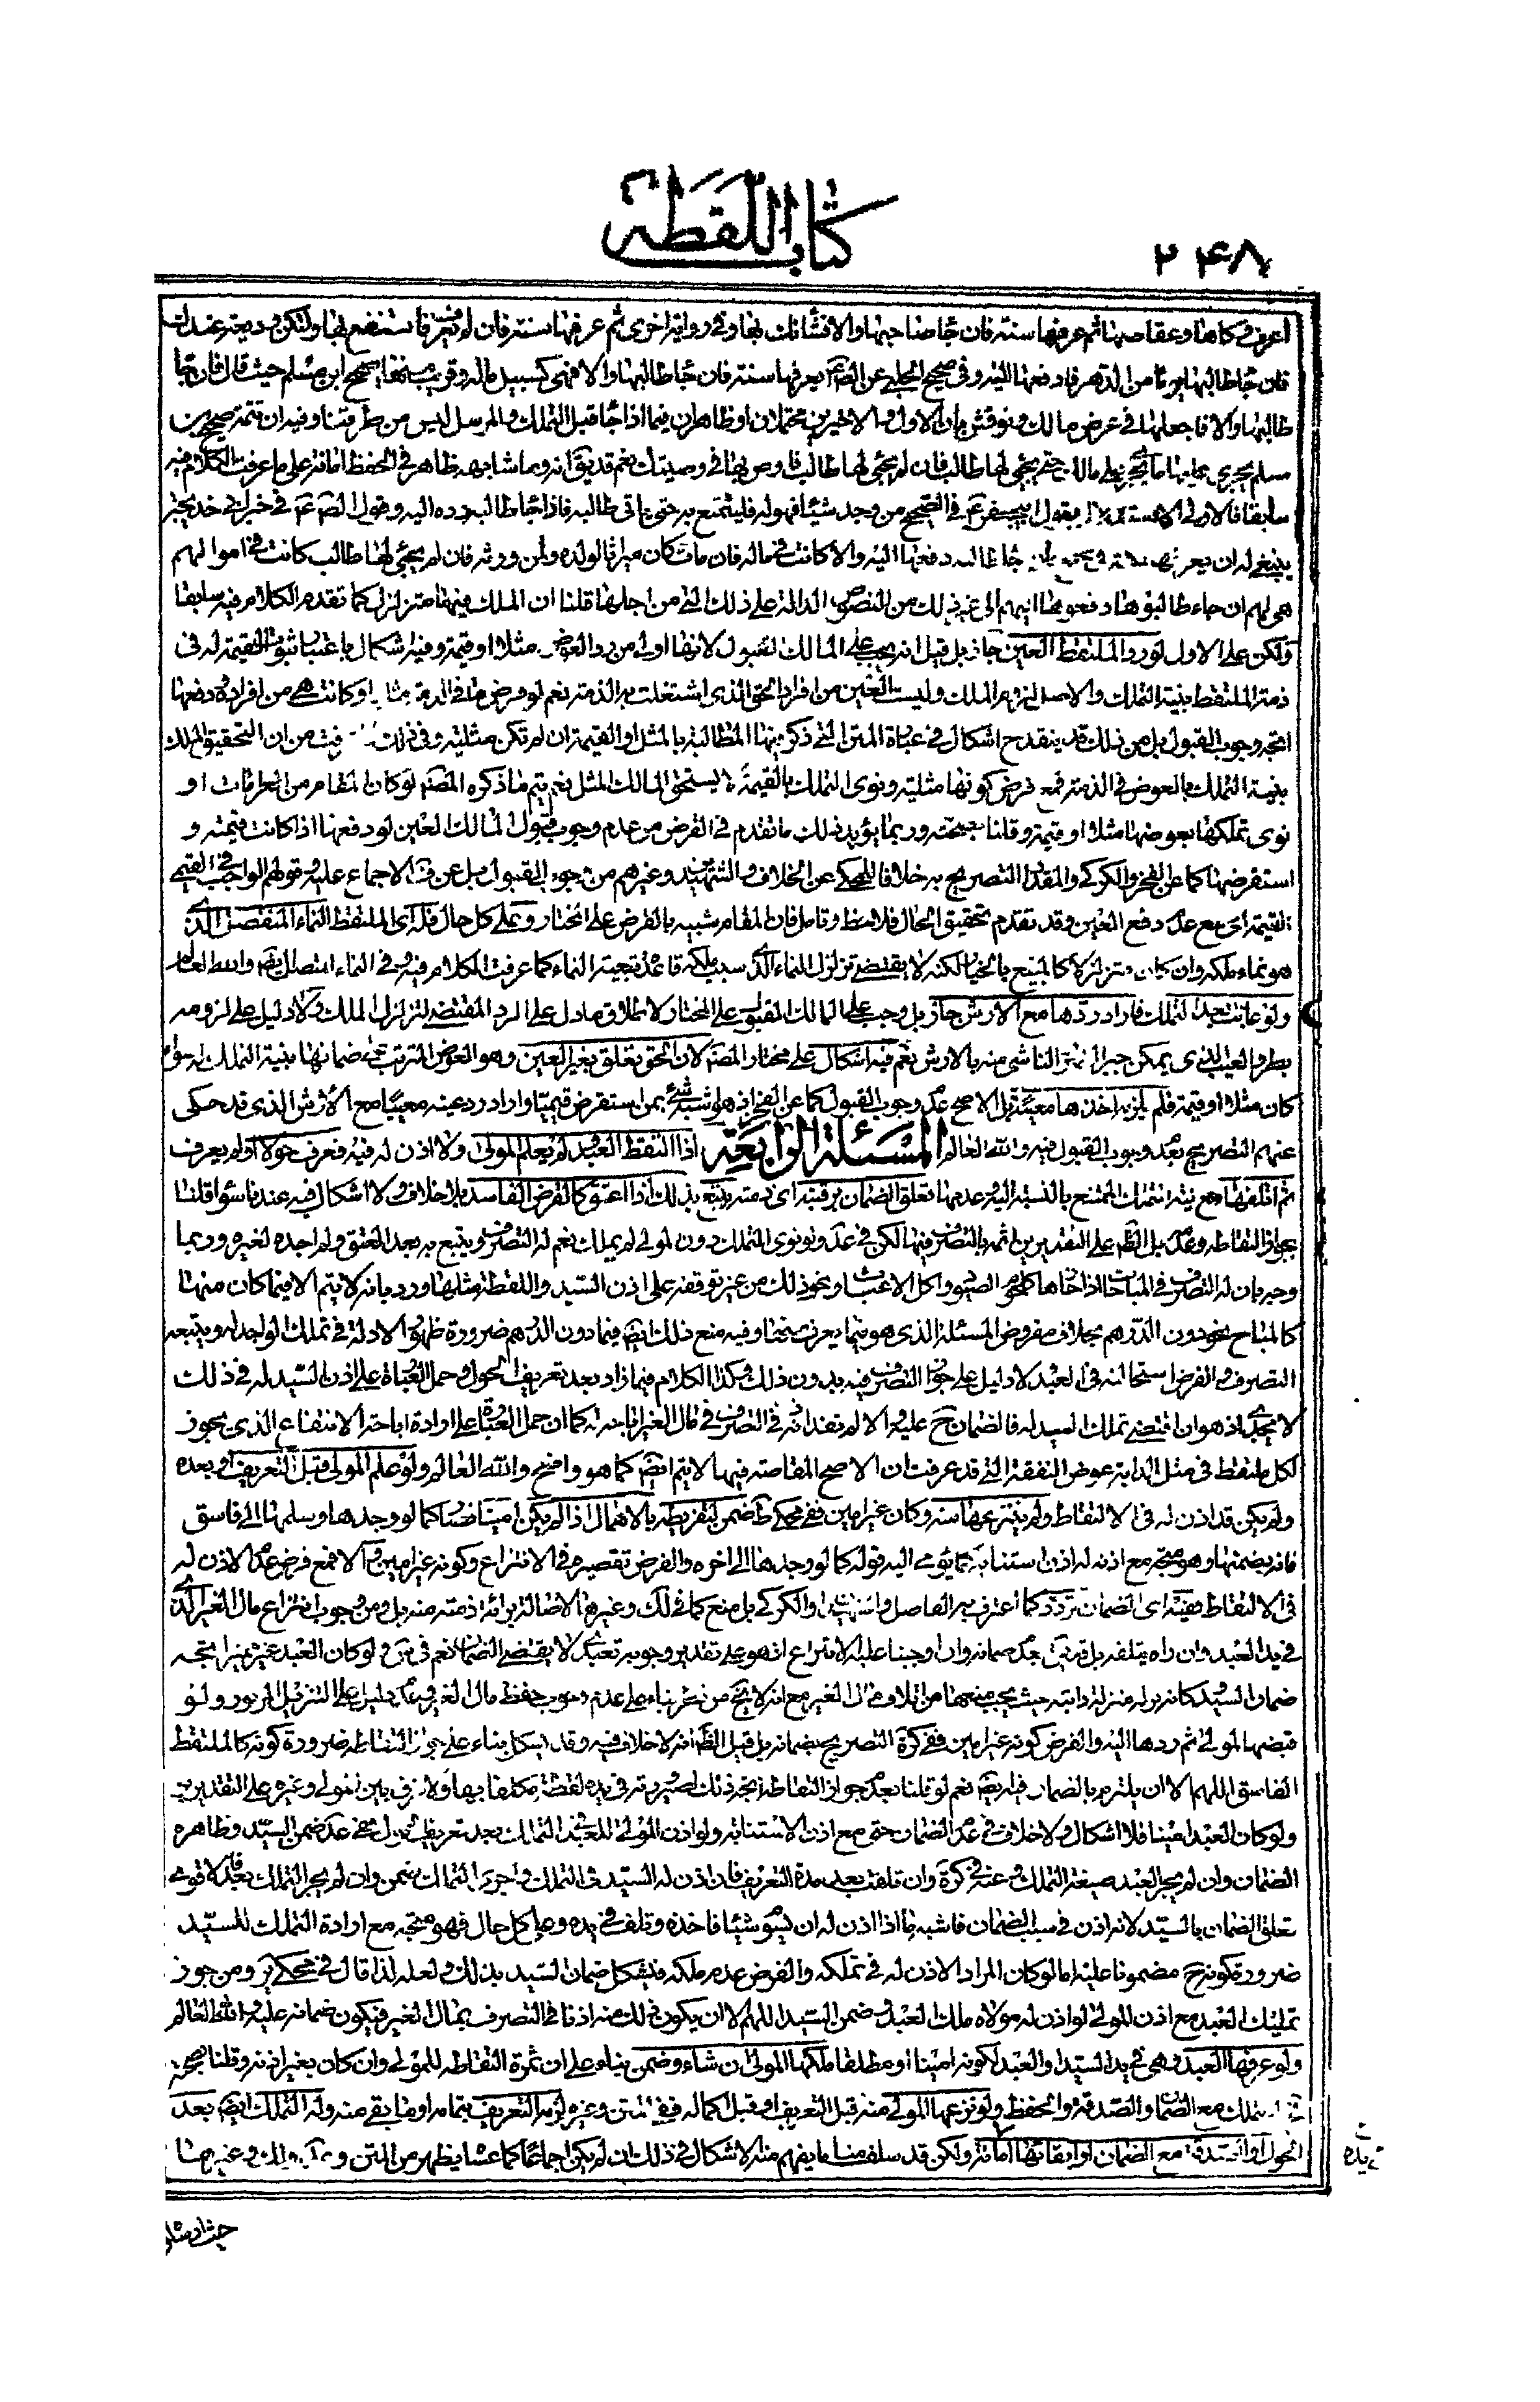 كتاب اللقطة
٢٤٨
اعرف وكاءها وعفاصها ثم عرفها سنة فان جاء صاحبها والا فشأنك بها وفي رواية اخرى ثم عرفها سنة فان لم تعرف فاستنفع بها ولتكن وديعة عندك
فان جاء طالبها يوما من الدهر فادفعها اليه وفي صحيح الحلبي عن الصادق ع يعرفها سنة فان جاء طالبها والا فهي كسبيل ماله وقريب منها صحيح ابن مسلم حيث قال فان جاء
طالبها والا فاجعلها في عرض مالك ونوقش بان الاول والاخيرين محتملان او ظاهران فيما اذا جاء قبل التملك والمرسل ليس من طرقنا وفيه ان تتمة صحيح بن
مسلم يجري عليها ما يجري على مالك حتى يجئ لها طالب فان لم يجئ لها طالب فاوص بها في وصيتك نعم قد يق انه وما شابهه ظاهر في الحفظ امانة على ما عرفت الكلام فيه
سابقا فالاولى الاستدلال بقول ابيجعفر ع في الصحيح من وجد شيئا فهو له فليتمتع به حتى ياتي طالبه فاذا جاء طالبه رده اليه وقول الص ع في خبر ابي خديجة
ينبغي له ان يعرفها سنة في مجمع فان جاء طالبه دفعها اليه والا كانت في ماله فان مات كان ميراثا لولده ولمن ورثه فان لم يجئ لها طالب كانت في اموالهم
هي لهم ان جاء طالبها دفعوها اليهم الى غير ذلك من النصوص الدالة على ذلك التي من اجلها قلنا ان الملك فيها متزلزل كما تقدم الكلام فيه سابقا
ولكن على الاول لو رد الملتقط العين جاز بل قيل انه يجب على المالك القبول لانها اولى من رد العوض مثلا او قيمة وفيه اشكال باعتبار ثبوت القيمة له في
ذمة الملتقط بنية التملك والاصل لزوم الملك وليست العين من افراد الحق الذي اشتغلت به الذمة نعم لو فرض ما في الذمة مثليا وكانت هي من افراده ودفعها
اتجه وجوب القبول بل من ذلك قد ينقدح اشكال في عبارة المتن التي ذكر فيها المطالبة بالمثل او القيمة ان لم تكن مثلية وفي غيرها لما عرفت من ان التحقيق الملك
بنية التملك بالعوض في الذمة فمع فرض كونها مثلية ونوى التملك بالقيمة لا يستحق المالك المثل نعم يتم ما ذكره المصنف لو كان المقام من الغرامات او
نوى تملكها بعوضها مثلا او قيمة وقلنا بصحته وربما يؤيد ذلك ما تقدم في القرض من عدم وجوب قبول المالك العين لو دفعها اذا كانت قيمية و
استقرضها كما عن الفخر والكركي والمقداد التصريح به خلافا للمحكي عن الخلاف والشهيدين وغيرهم من وجوب القبول بل عن ف الاجماع عليه وقولهم الواجب في القيمي
القيمة اي مع عدم دفع العين وقد تقدم تحقيق الحال فلاحظ وتامل فان المقام شبيه بالقرض على المختار وعلى كل حال فله اي الملتقط النماء المنفصل الذي
هو نماء ملكه وان كان متزلزلا كالمبيع بالخيار لكنه لا يقتضي تزلزل النماء الذي سبب ملكه قاعدة تبعية النماء كما عرفت الكلام فيه وفي النماء المتصل ايض والله العالم
ولو عابت بعد التملك فاراد ردها مع الارش جاز بل وجب على المالك القبول على المختار لاطلاق ما دل على الرد المقتضي لتزلزل الملك ولا دليل على لزومه
بطرو العيب الذي يمكن جبر النقص الناشي منه بالارش نعم فيه اشكال على مختار المصنف لان الحق تعلق بغير العين وهو العوض المترتب على ضمانها بنية التملك له سواء
كان مثلا او قيمة فلم يلزمه اخذها معيبة بل الاصح عدم وجوب القبول كما عن الفخر اذ هو اشبه شئ بمن استقرض قيميا واراد رد عينه معيبا مع الارش الذي قد حكى
عنهم التصريح بعدم وجوب القبول فيه والله العالم المسئلة الرابعة اذا التقط العبد ولم يعلم المولى ولا اذن له فيه فعرف حولا او لم يعرف
ثم اتلفها مع نية التملك الممتنع بالنسبة اليه وعدمها تعلق الضمان برقبته اي ذمته يتبع بذلك اذا اعتق كالقرض الفاسد بلا خلاف ولا اشكال فيه عندنا سواء قلنا
بجواز التقاطه وعدمه بل الظ على التقديرين اثمه بالتصرف فيها لكن في عد ولو نوى التملك دون المولى لم يملك نعم له التصرف ويتبع به بعد العتق ولم اجده لغيره وربما
وجه بان له التصرف في المباحات اذا حازها كلحوم الصيود اكل الاعشاب ونحو ذلك من غير توقف على اذن السيد واللقطة مثلها ورد بانه لا يتم الا فيما كان منها
كالمباح نحو دون الدرهم بخلاف مفروض المسئلة الذي هو فيما يعرف سنة وفيه منع ذلك ايض فيما دون الدرهم ضرورة ظهور الادلة في تملك الواجد له ويتبعه
التصرف والفرض استحالته في العبد لا دليل على جواز التصرف فيه بدون ذلك وكذا الكلام فيما زاد بعد تعريف الحول وحمل العبارة على اذن السيد له في ذلك
لا يجدي اذ هو ان اقتضى تملك السيد له فالضمان ح عليه والا لم نفد اذنه في التصرف في مال الغير اباحته له كما ان حمل العبارة على ارادة اباحة الانتفاع الذي يجوز
لكل ملتقط في مثل الدابة عوض النفقة التي قد عرفت ان الاصح المقاصة فيها لا يتم ايض كما هو واضح والله العالم ولو علم المولى قبل التعريف او بعده
ولم يكن قد اذن له في الالتقاط ولم ينتزعها منه وكان غير امين ففي محكي ط ضمن لتفريطه بالاهمال اذا لم يكن امينا ضمنا كما لو وجدها وسلمها الى فاسق
فانه يضمنها وهو متجه مع اذنه له اذن استنابة كما يومى اليه قوله كما لو وجدها الى اخره والفرض تقصيره في الانتزاع وكونه غير امين والا فمع فرض عدم الاذن له
في الالتقاط ففيه اي الضمان تردد كما اعترف به الفاضل والشهيدان والكركي بل منع كما في لك وغيرها لاصالة برائة ذمته منه بل ومن وجوب انتزاع مال الغير الذي
في يد العبد وان راه يتلفه بل قد يق بعدم ضمانه وان اوجبنا عليه الانتزاع اذ هو على تقدير وجوبه تعبدي لا يقتضي الضمان نعم في س ولو كان العبد غير مميز اتجه
ضمان السيد كانه نزله منزلة دابته حيث يجب منعها من اتلاف مال الغير مع انه لا يخ من نظر بناء على عدم وجوب حفظ مال الغير وعدم دليل على التنزيل المزبور ولو
قبضها المولى ثم ردها اليه والفرض كونه غير امين ففي كرة التصريح بضمانه بل قيل الظ انه لا خلاف فيه وقد يشكل بناء على جواز التقاطه ضرورة كونه كالملتقط
الفاسق اللهم الا ان يلتزم بالضمان فيه ايض نعم لو قلنا بعدم جواز التقاطه اتجه ذلك لصيرورته في يده لقطة مكلفا بها ولا فرق بين المولى وغيره على التقديرين
ولو كان العبد امينا فلا اشكال ولا خلاف في عدم الضمان حتى مع اذن الاستنابة ولو اذن المولى للعبد في التملك بعد تعريف الحول ففي عد ضمن السيد وظاهره
الضمان وان لم يجر العبد صيغة التملك وعنه في كرة وان تلفت بعد مدة التعريف فان اذن له السيد في التملك وجرى التملك ضمن وان لم يجر التملك بعد فالاقوى
تعلق الضمان بالسيد لانه اذن في سبب الضمان فاشبه ما اذا اذن له ان يسوم شيئا فاخذه وتلف في يده وعلى كل حال فهو متجه مع ارادة التملك للسيد
ضرورة كونه ح مضمونا عليه اما لو كان المراد الاذن له في تملكه والفرض عدم ملكه فيشكل ضمان السيد بذلك ولعله لذا قال في محكي ير ومن جوز
تمليك العبد مع اذن المولى لو اذن له مولاه ملك العبد وضمن السيد اللهم الا ان يكون ذلك منه اذنا في التصرف بمال الغير فيكون ضمانه عليه والله العالم
ولو عرفها العبد فهي في يد السيد او العبد لكونه امينا او مطلقا ملكها المولى ان شاء وضمن بناء على ان ثمرة التقاطه للمولى وان كان بغير اذنه وقلنا بصحته
تملك مع الضمان والصدقة والحفظ ولو نزعها المولى منه قبل التعريف او قبل اكماله ففي المتن وغيره لزمه التعريف بتمامه او ما بقي منه وله التملك ايض بعد
الحول او الصدقة مع الضمان او ابقائها امانة ولكن قد سلف منا ما يفهم منه الاشكال في ذلك ان لم يكن اجماعا كما عساه يظهر من المتن و ولك وغيرها